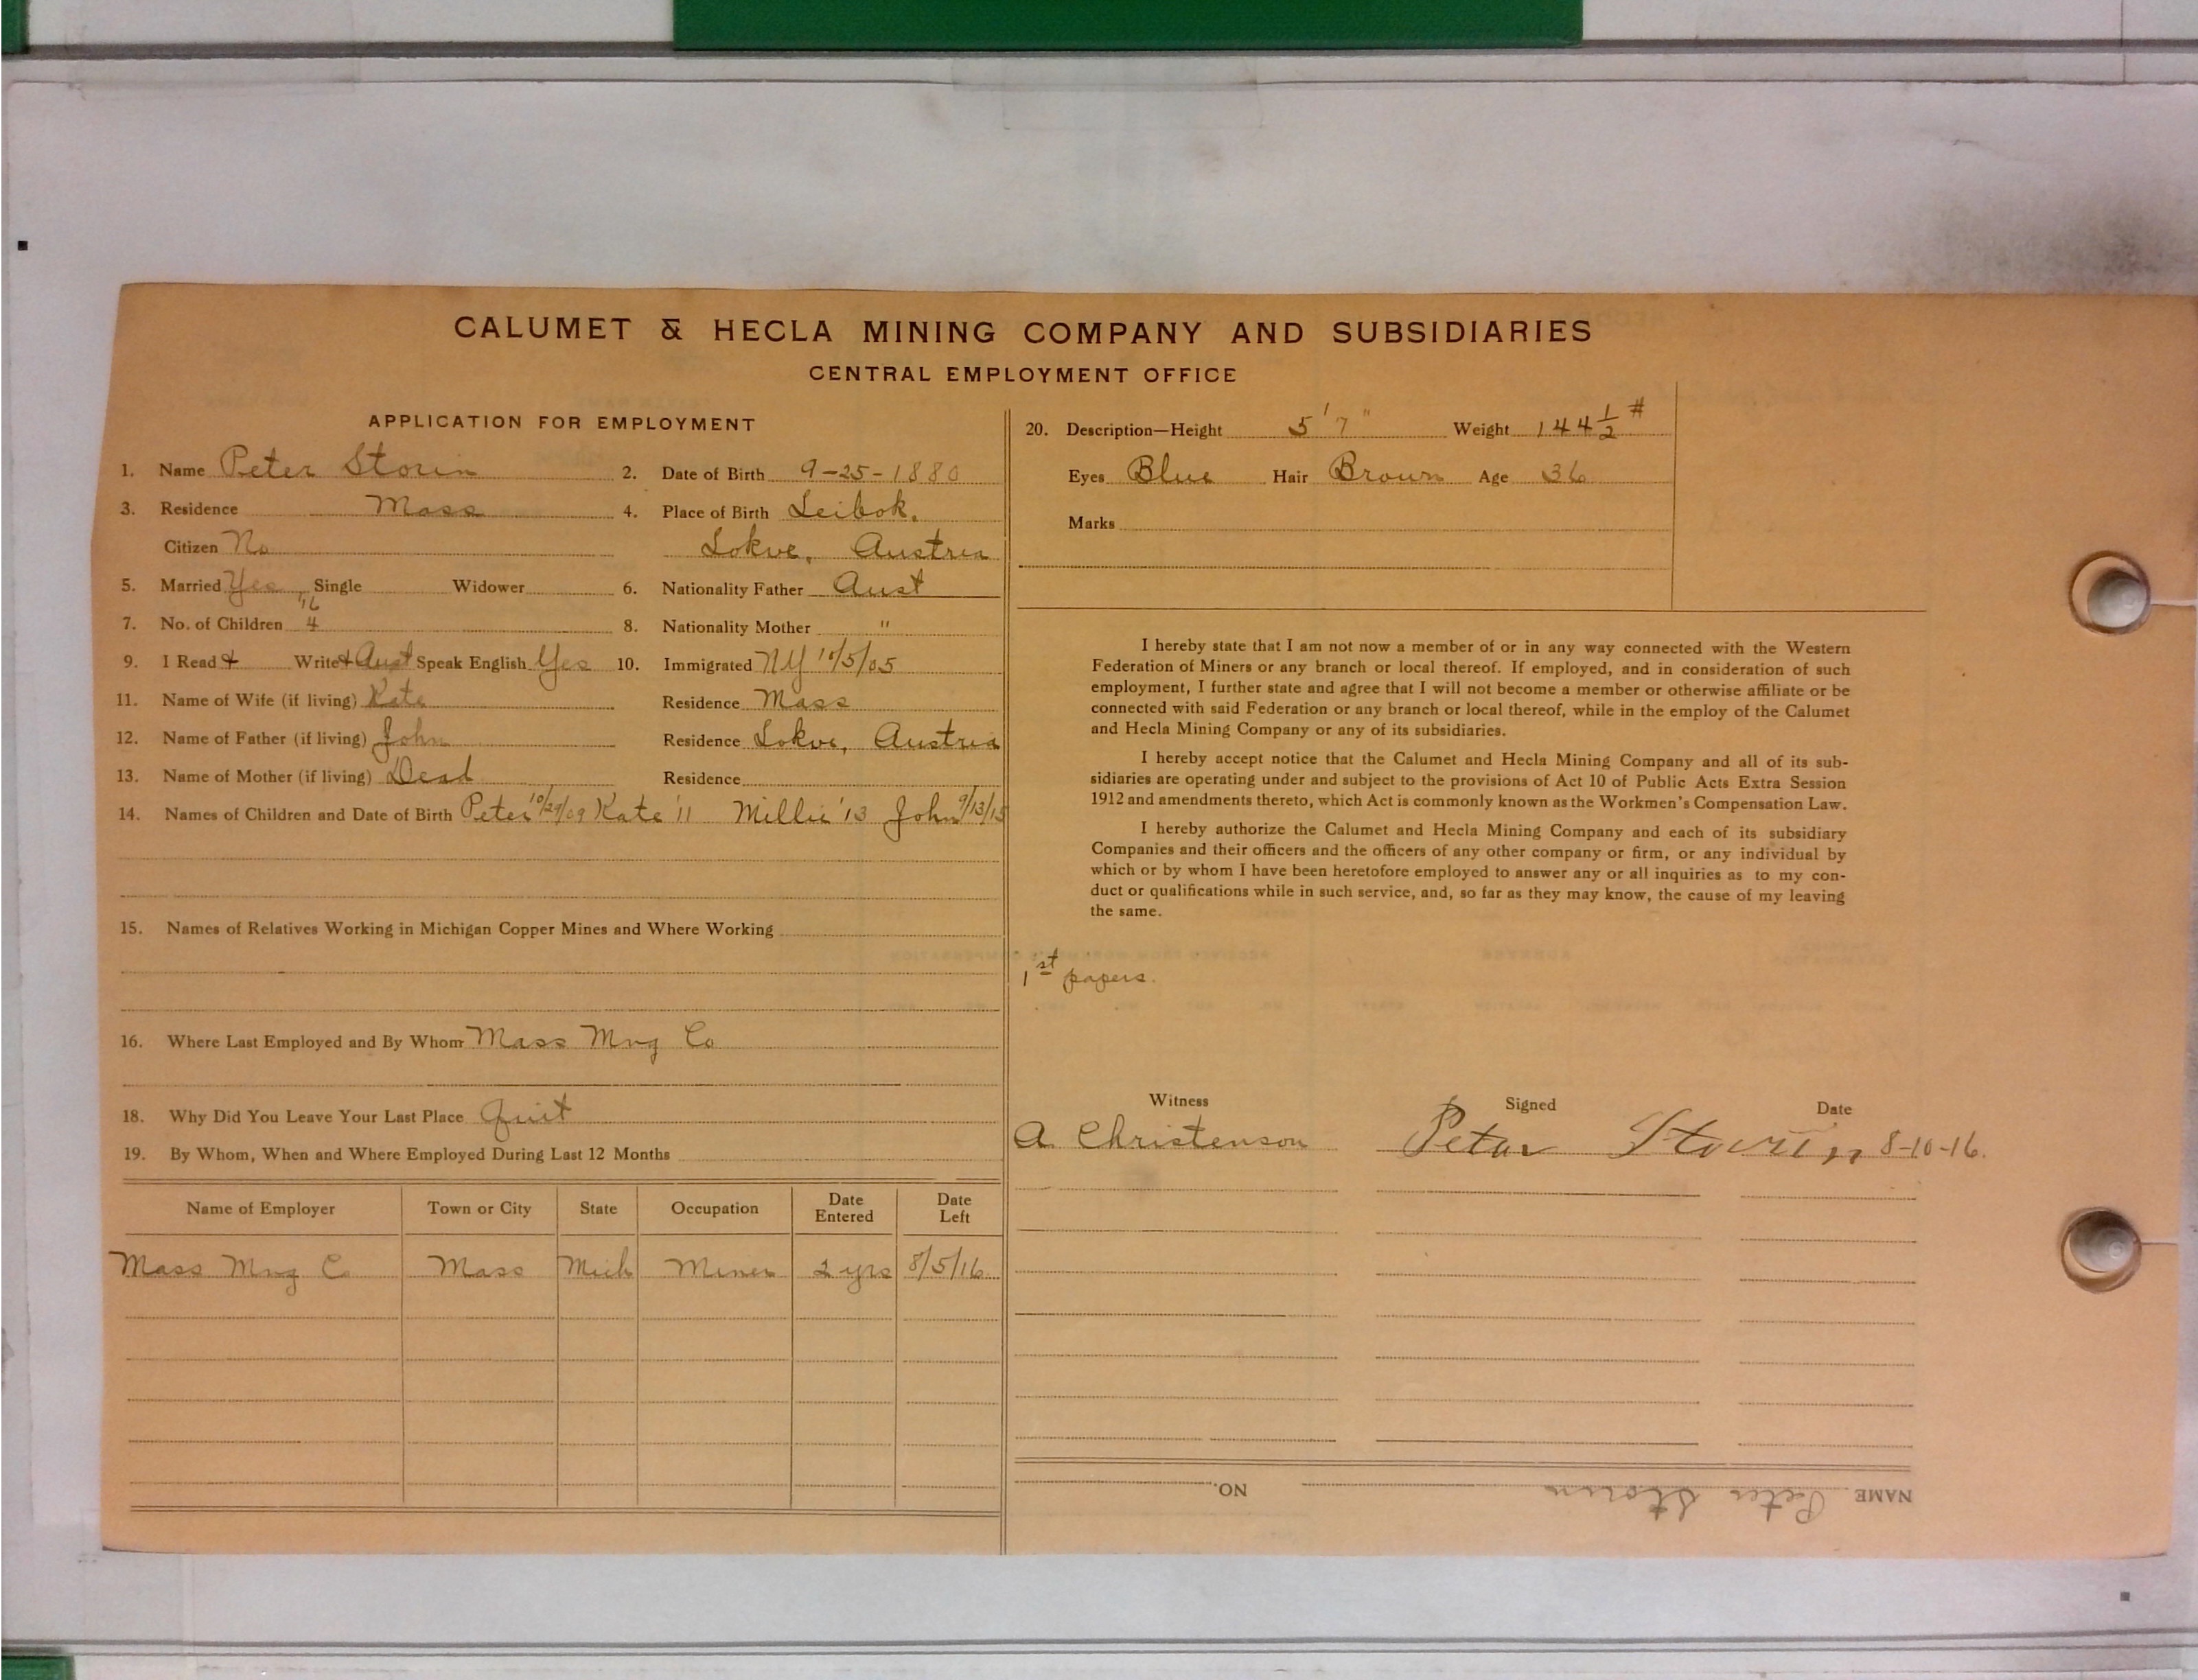 CALUMET & HECLA MINING COMPANY AND SUBSIDIARIES
CENTRAL EMPLOYMENT OFFICE
APPLICATION FOR EMPLOYMENT
1. Name Peter Storin 2. Date of Birth 9-25-1880
3. Residence Mass 4. Place of Birth Leibok,
Citizen No Lokve, Austria
5. Married Yes Single Widower 6. Nationality Father Aust
'16
7. No. of Children 4 8. Nationality Mother "
9. I Read & Write & Aust Speak English Yes 10. Immigrated NY 10/5/05
11. Name of Wife (if living) Kate Residence Mass
12. Name of Father (if living) John Residence Lokve, Austria
13. Name of Mother (if living) Dead Residence
14. Names of Children and Date of Birth Peter 10/29/09 Kate '11 Millie '13 John 9/13/15
15. Names of Relatives Working in Michigan Copper Mines and Where Working
16. Where Last Employed and By Whom Mass Mng Co
18. Why Did You Leave Your Last Place Quit
19. By Whom, When and Where Employed During Last 12 Months
Name of Employer Town or City State Occupation Date Entered Date Left
Mass Mng Co Mass Mich Miner 2 yrs 8/5/16
20. Description—Height 5' 7" Weight 144 1/2 #
Eyes Blue Hair Brown Age 36
Marks
I hereby state that I am not now a member of or in any way connected with the Western
Federation of Miners or any branch or local thereof. If employed, and in consideration of such
employment, I further state and agree that I will not become a member or otherwise affiliate or be
connected with said Federation or any branch or local thereof, while in the employ of the Calumet
and Hecla Mining Company or any of its subsidiaries.
I hereby accept notice that the Calumet and Hecla Mining Company and all of its sub-
sidiaries are operating under and subject to the provisions of Act 10 of Public Acts Extra Session
1912 and amendments thereto, which Act is commonly known as the Workmen's Compensation Law.
I hereby authorize the Calumet and Hecla Mining Company and each of its subsidiary
Companies and their officers and the officers of any other company or firm, or any individual by
which or by whom I have been heretofore employed to answer any or all inquiries as to my con-
duct or qualifications while in such service, and, so far as they may know, the cause of my leaving
the same.
1st papers.
Witness Signed Date
A Christenson Peter Storin 8-10-16.
NAME Peter Storin NO.